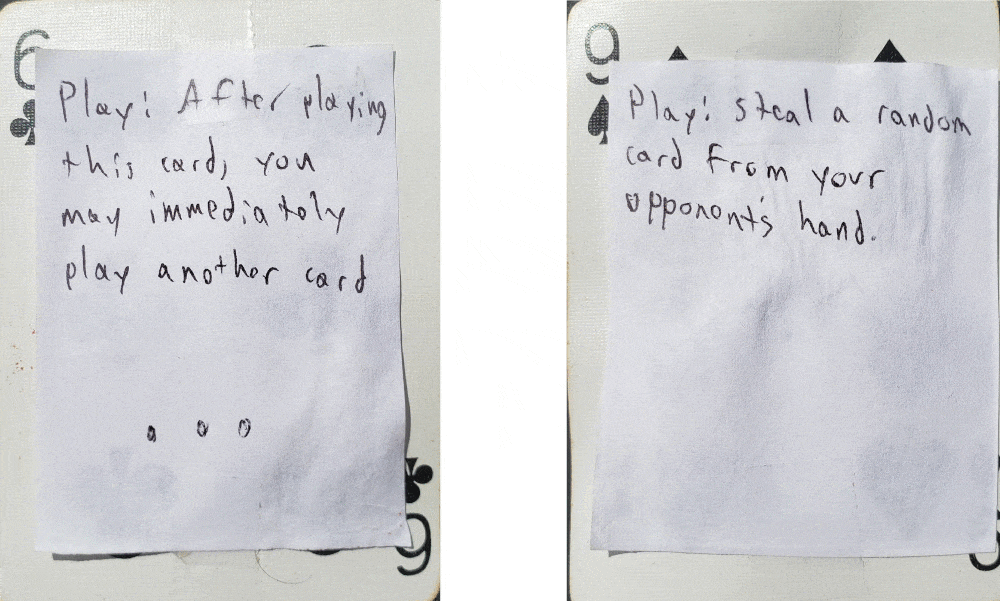 6
Play: After playing
this card, you
may immediately
play another card
...
6
9
Play: steal a random
card from your
opponent's hand.
9